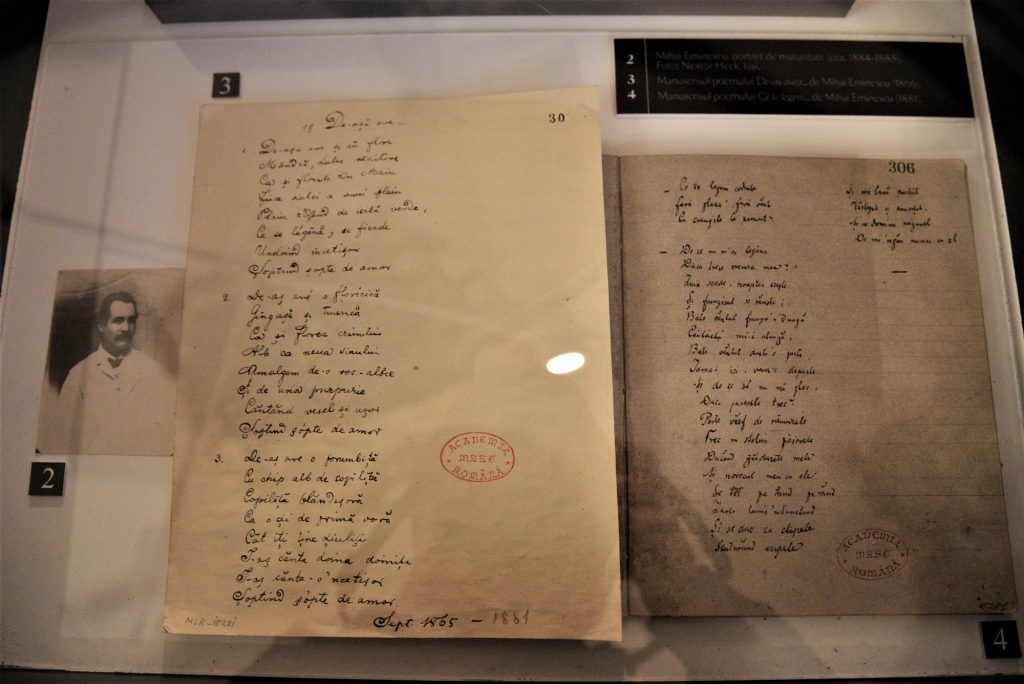 2 Mihai Eminescu, portret de maturitate (cca. 1884-1885)
Foto: Nestor Heck, Iași
3 Manuscrisul poemului De-aș avea... de Mihai Eminescu (1866)
4 Manuscrisul poemului Ce te legeni... de Mihai Eminescu (1881)
3
30
19 De-așu ave...
1. De-așu ave și eu flore
Mândră, dulce
Ca și florile din Maiu
Fiice dulci a unui plaiu
Plaiu rîdând de erbă verde,
Ce se légănă, se pierde
Undoind încetișor
Șoptind șopte de amor
2. De-aș avé o floricică
Gingașă și tinerică
Ca și florea crinului
Alb ca neua sînului
Amalgam de-o ros-albie
Și de una purpurie
Cântănd vesel și ușor
Șoptind șópte de amor
3. De-aș ave o porumbiță
Cu chip alb de copiliță
Copiliță blândișoră
Ca o di de primă-voră
Cât ți ține
I-aș cânta doina doinița
I-aș cânta-o 'ncetișor
Șoptind șópte de amor.
Sept 1865 – 1881
MLR-15201
ACADEMIA
MSSE
ROMÂNĂ
2
306
– Ce te legeni codrule
fără ploae, fără vânt
Cu crengile la pament?
– De ce nu m'aș legăna
Daca trece vremea mea?
Ziua scade, noaptea crește
Și frunzișul
Bate vântul frunza 'n dungă
Cântăreții mi-i alungă;
Bate vântul dintr'o parte
Iarna-i ici, vara-i departe
Și de ce să nu mă plec,
Daca paserile trec?
Peste vârf de rămurele
Trec în stoluri
Ducând gândurile mele
Și norocul meu cu ele
Se tot pe rând, pe rând
Zarea lumii 'ntunecând
Și se duc ca clipele
Scuturând aripele
Și mă lasă pustiit
Veștejit și amorțit
Și cu doru-mi singurel
De mă 'ngân numai cu el
ACADEMIA
MSSE
ROMÂNĂ
4